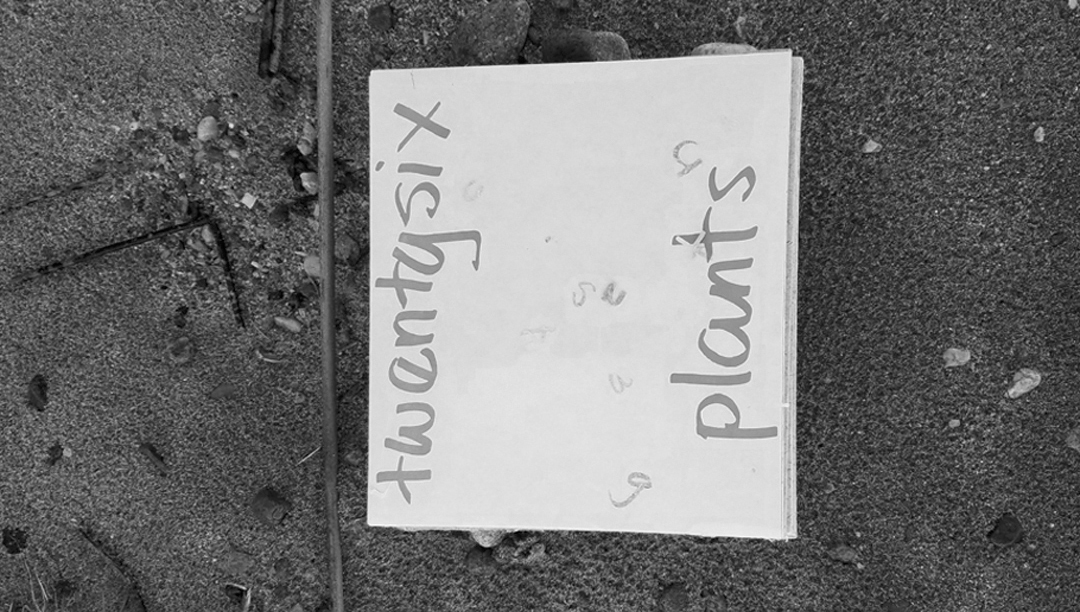 twentysix
plants